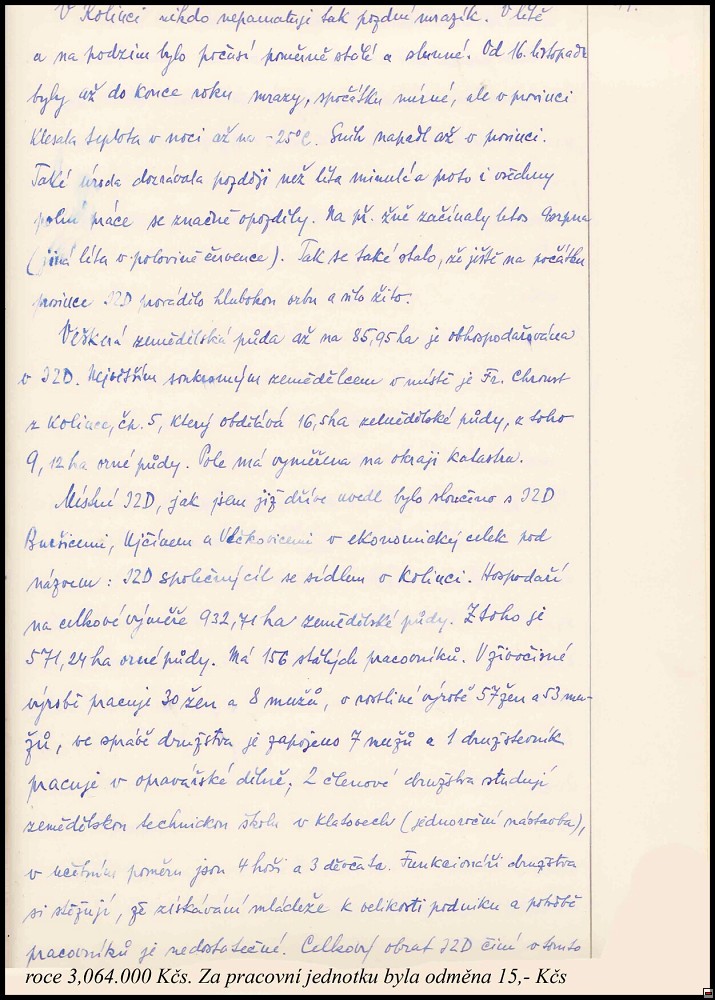 V Kolinci nikdo nepamatuje tak pozdní mrazík. V létě
a na podzim bylo počasí poměrně stálé a slunné. Od 16. listopadu
byly už do konce roku mrazy, zpočátku mírné, ale v prosinci
klesala teplota v noci až na -25°C. Sníh napadl až v prosinci.
Také úroda dozrávala později než léta minulá a proto i všechny
polní práce se značně opozdily. Na př. žně začínaly letos 9. srpna
(jiná léta v polovině července). Tak se také stalo, že ještě na počátku
prosince JZD provádělo hlubokou orbu a silo žito.
Veškerá zemědělská půda až na 85,95 ha je obhospodařována
v JZD. Největším soukromým zemědělcem v místě je Fr. Chroust
z Kolince, čp. 5, který obdělává 16,5 ha zemědělské půdy, z toho
9,12 ha orné půdy. Pole má vyměřena na okraji katastru.
Místní JZD, jak jsem již dříve uvedl bylo sloučeno s JZD
Buršicemi, Ujčínem a Vlčkovicemi v ekonomický celek pod
názvem: JZD společný cíl se sídlem v Kolinci. Hospodaří
na celkové výměře 932,71 ha zemědělské půdy. Z toho je
571,24 ha orné půdy. Má 156 stálých pracovníků. V živočišné
výrobě pracuje 30 žen a 8 mužů, v rostlinné výrobě 57 žen a 53 mu-
žů, ve správě družstva je zapojeno 7 mužů a 1 družstevník
pracuje v opravářské dílně; 2 členové družstva studují
zemědělskou technickou školu v Klatovech (jednoroční nástavba),
v učebním poměru jsou 4 hoši a 3 děvčata. Funkcionáři družstva
si stěžují, že získávání mládeže k velikosti podniku a potřebě
pracovníků je nedostatečné. Celkový obrat JZD činí v tomto
roce 3,064.000 Kčs. Za pracovní jednotku byla odměna 15,- Kčs